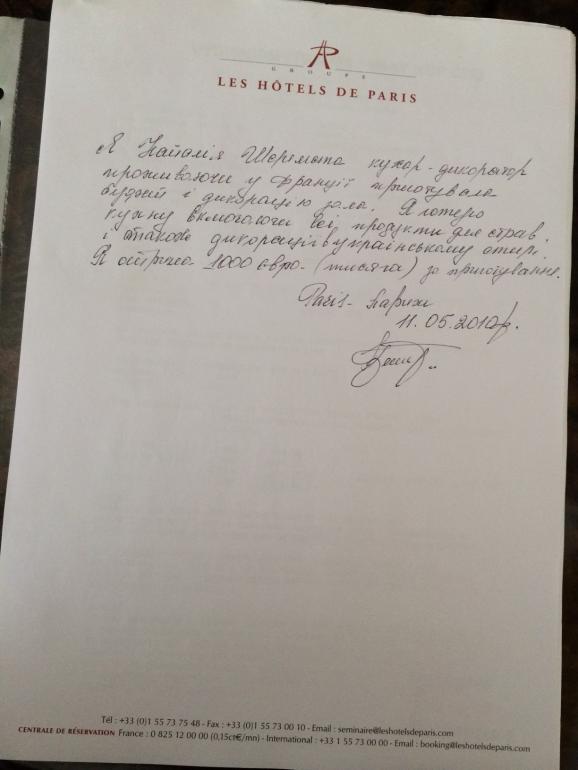 GROUPE
LES HÔTELS DE PARIS
Я Наталія Шеремета кухар-дикоратор
проживаючи у Франції приготувала
буджет і дикорацію зала. Я
кухну всі продукти для страв.
і также дикорації в українському
Я 1000 євро. (тисяча) за приготування.
Paris - Париж
11.05.2010р.
Tél : +33 (0)1 55 73 75 48 - Fax : +33 (0)1 55 73 00 10 - Email : seminaire@leshotelsdeparis.com
CENTRALE DE RÉSERVATION France : 0 825 12 00 00 (0,15ct€/mn) - International : +33 1 55 73 00 00 - Email : booking@leshotelsdeparis.com